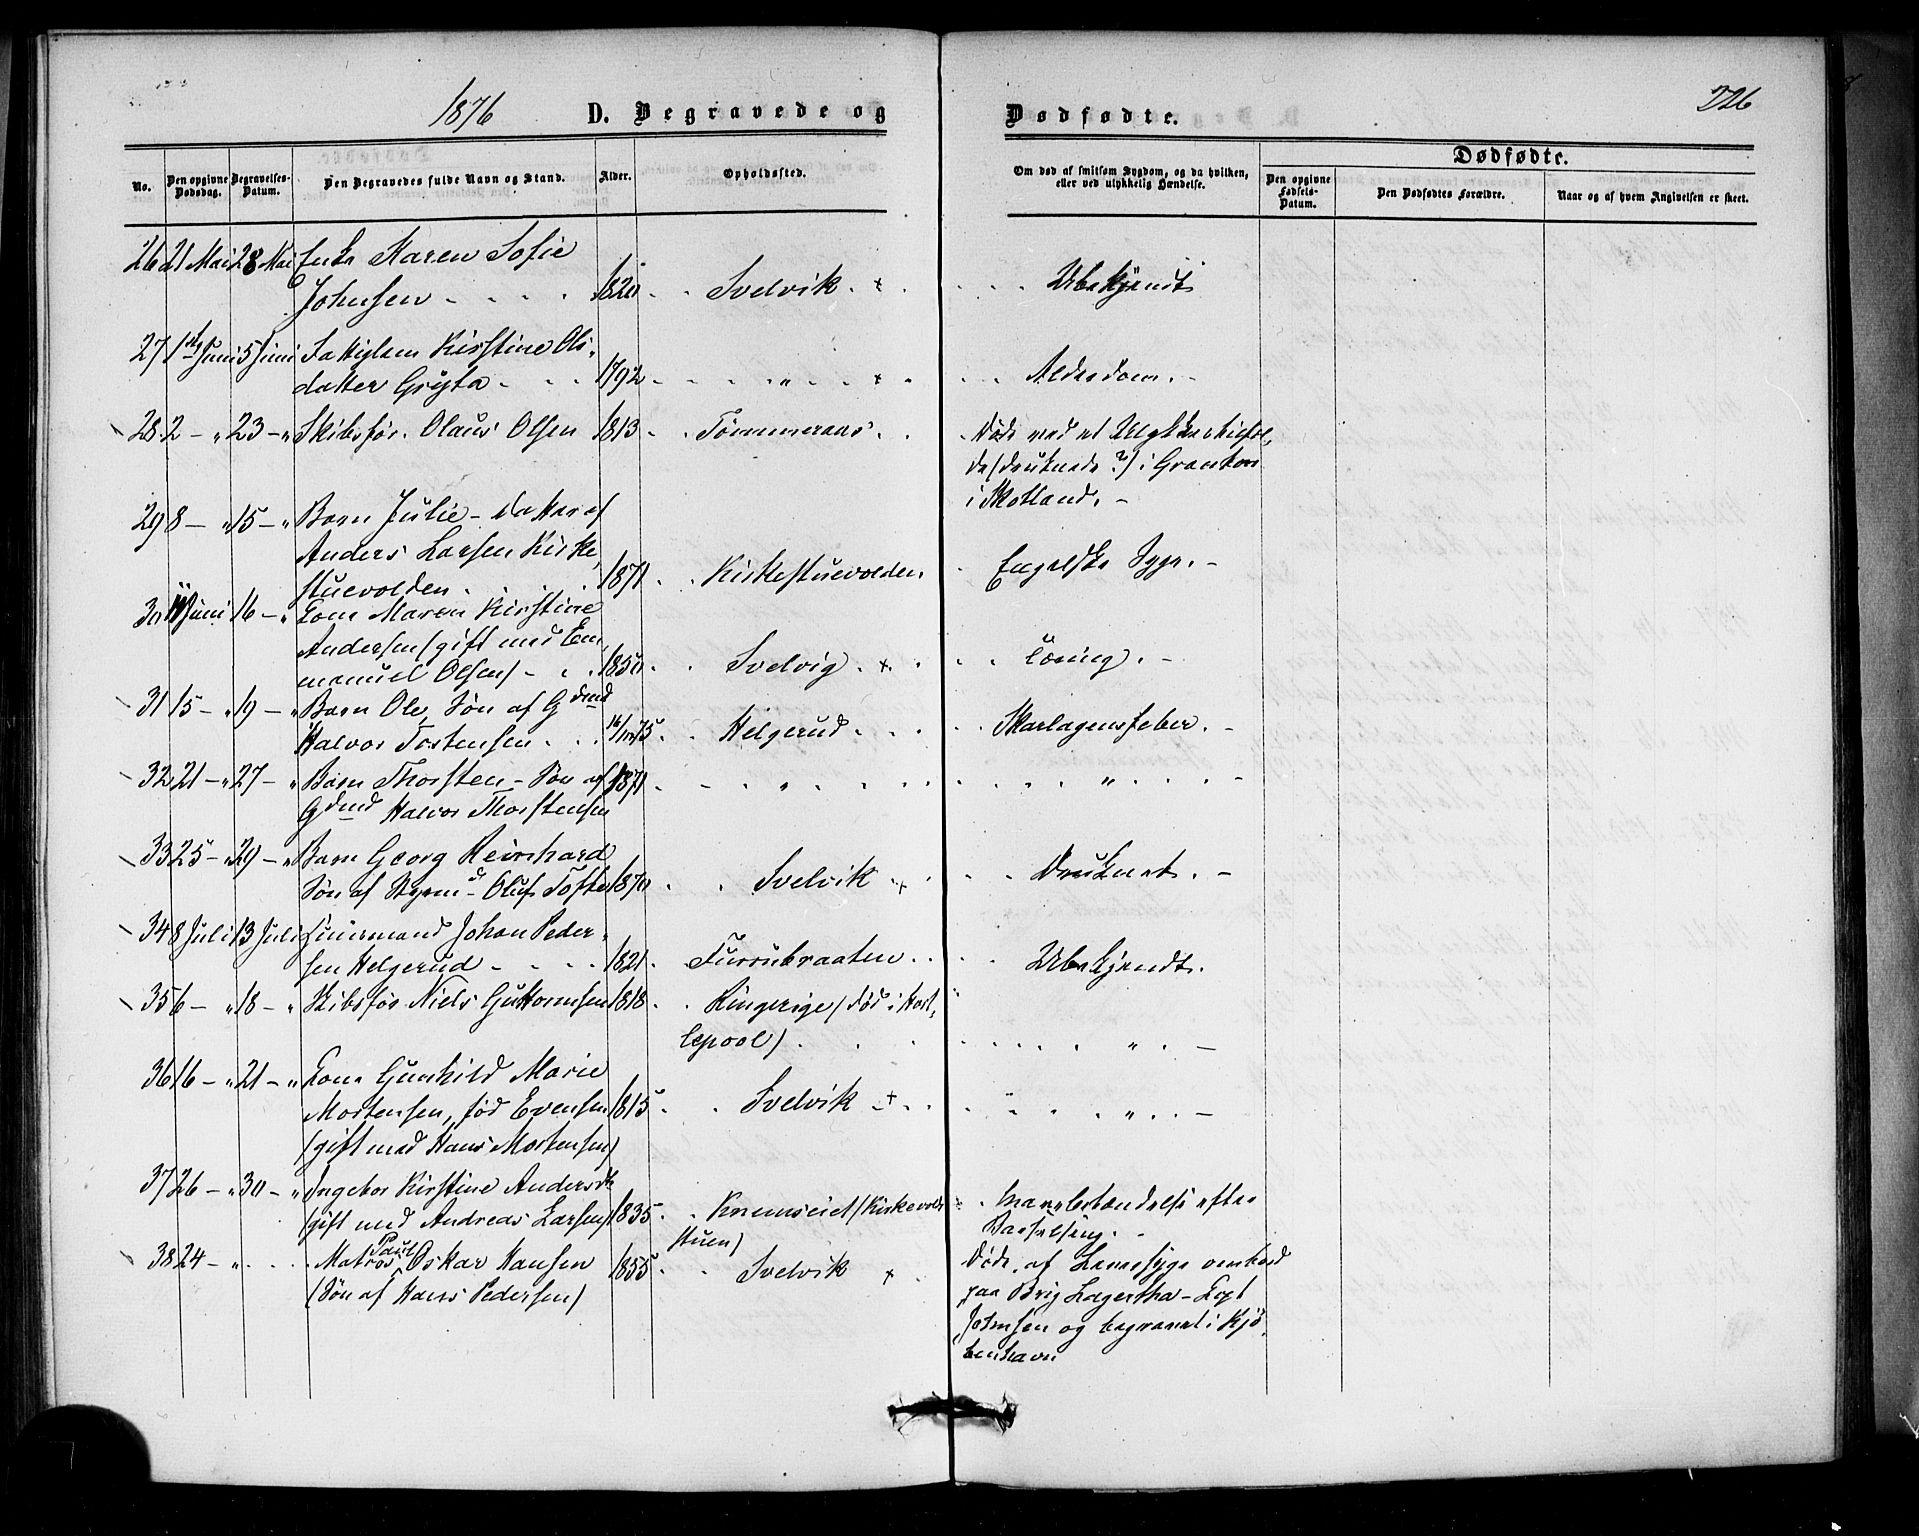 1876 D. Begravede og Dødfødte. 226
No. Den opgivne Dødsdag. Begravelses-Datum. Den Begravedes fulde Navn og Stand. Alder. Opholdssted. Om død af smitsom Sygdom, og da hvilken, eller ved ulykkelig Hændelse.
Dødfødte.
Den opgivne Fødsels-Datum. Den Dødfødtes Forældre. Naar og af hvem Angivelsen er skeet.
26 21 Mai 28 Mai Enke Karen Sofie
Johnsen 1820 Svelvik + Ubekjendt
27 1 Juni 5 Juni Fattiglem Kirstine Ols-
datter Gryta 1792 " + Alderdom.
28 2 - " 23 - " Skibsfør. Olaus Olsen 1813 Tømmeraas Døde ved et Ulykkestilfæl-
de (druknede?) i Granton
i Skotland.
29 8 - " 15 - " Barn Julie - Datter af
Anders Larsen Kirke-
stuevolden 1871 Kirkestuevolden Engelske Syge.
30 11 Juni 16 - " Kone Maren Kirstine
Andersen (gift med Em-
manuel Olsen) 1850 Svelvig + Tæring.
31 15 - " 19 - " Barn Ole, Søn af Gdmd
Halvor Tostensen 75 Helgerud Skarlagensfeber.
32 21 - " 27 - " Barn Thorsten - Søn af 1871 " "
Gdmd Halvor Thorstensen
33 25 - " 29 - " Barn Georg Reinhard
Søn af Styrmd Oluf Tofte 1870 Svelvik + Druknet.
34 8 Juli 13 Juli Huusmand Johan Peder-
sen Helgerud 1821 Furrubraaten Ubekjendt.
35 6 - " 18 - " Skibsfør Niels Guttormsen 1818 Ringerige (død i Hart-
lepool) "
36 16 - " 21 - " Kone Gunhild Marie
Mortensen, fød Evensen 1815 Svelvik + "
(gift med Hans Mortensen)
37 26 - " 30 - " Ingebor Kirstine Andersdt
(gift med Andreas Larsen) 1835 Knemseiet (Kirkevold- Mavebetændelse efter
stuen) Barselseng.
38 24 - " Matros Paul Oskar Hansen 1855 Svelvik + Døde af Lavesyge ombord
(Søn af Hans Pedersen) paa Brig Lagertha - Kapt
Johnsen og begravet i Kjø-
benhavn